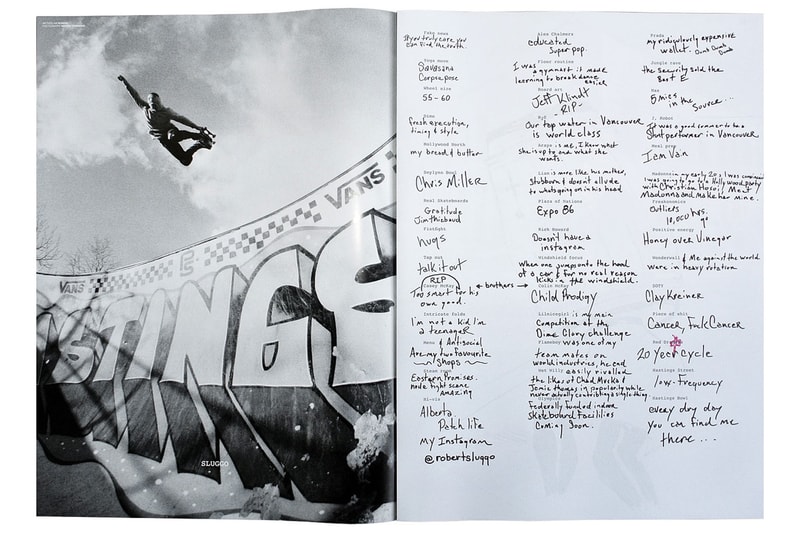 VANS
VANS
STINGS
SLUGGO
Fake news
If you truly care you
can find the truth.
Yoga move
Savasana
Corpse pose
Wheel size
55-60
Some
fresh execution,
timing & style
Hollywood North
my bread & butter
Seylynn Bowl
Chris Miller
Real Skateboards
Gratitude
Jim thiebaud
Fistfight
hugs
Tap out
talk it out
RIP
Corey McKay
Too smart for his
own good.
Intricate folds
I'm not a kid I'm
a teenageR
Menu & Antisocial
Are my two favourite
Shops
Steam room
Eastern promises
nude fight scene
Amazing
Hi-vis
Alberta
Patch life
My Instagram
@robertsluggo
Alex Chalmers
educated
Super pop.
Floor routine
I was a gymnast it made
learning to breakdance
easier
Board art
Jeff Klindt
-RIP-
H2O
Our top water in Vancouver
is world class
Grape is me, I know what
she is up to and what she
wants.
Lian is more like his mother,
Stubborn & doesn't allude
to whats going on in his head
Place of Nations
Expo 86
Rick Howard
Doesn't have a
instagram
Windshield focus
When one jumps onto the hood
of a car & for no real reason
Kicks in the windshield.
brothers
Colin McKay
Child Prodigy
Lincecgirl is my main
Competition at the
Dime Glory challenge
Flameboy was one of my
team mates on
world industries, he and
Wet Willy easily rivalled
the likes of Chad Muska &
Jamie thomas in popularity while
never actually contributing a single thing
Olympics
Federally funded indoor
Skateboard Facilities
Coming Soon.
Prada
my ridiculously expensive
wallet. Dumb Dumb
Dumb
Jungle rave
the Security sold the
Best E
Nas
5 mics
in the Source...
I, Robot
It was a good summer to be a
Stunt performer in Vancouver
Meal prep
Icm Van
Madonna in my early 20s, I was convinced
I was going to go to a Hollywood party
with Christian Hosoi, Meet
Madonna and make her mine.
Freakonomics
Outliers
10,000 hrs.
go
Positive energy
Honey over Vinegar
Wonderwall & Me against the world
were in heavy rotation
SOTY
Clay Kreiner
Piece of shit
Cancer, Fuck Cancer
Red Dragon
20 Year Cycle
Hastings Street
low-Frequency
Hastings Bowl
every dry day
you can find me
there...